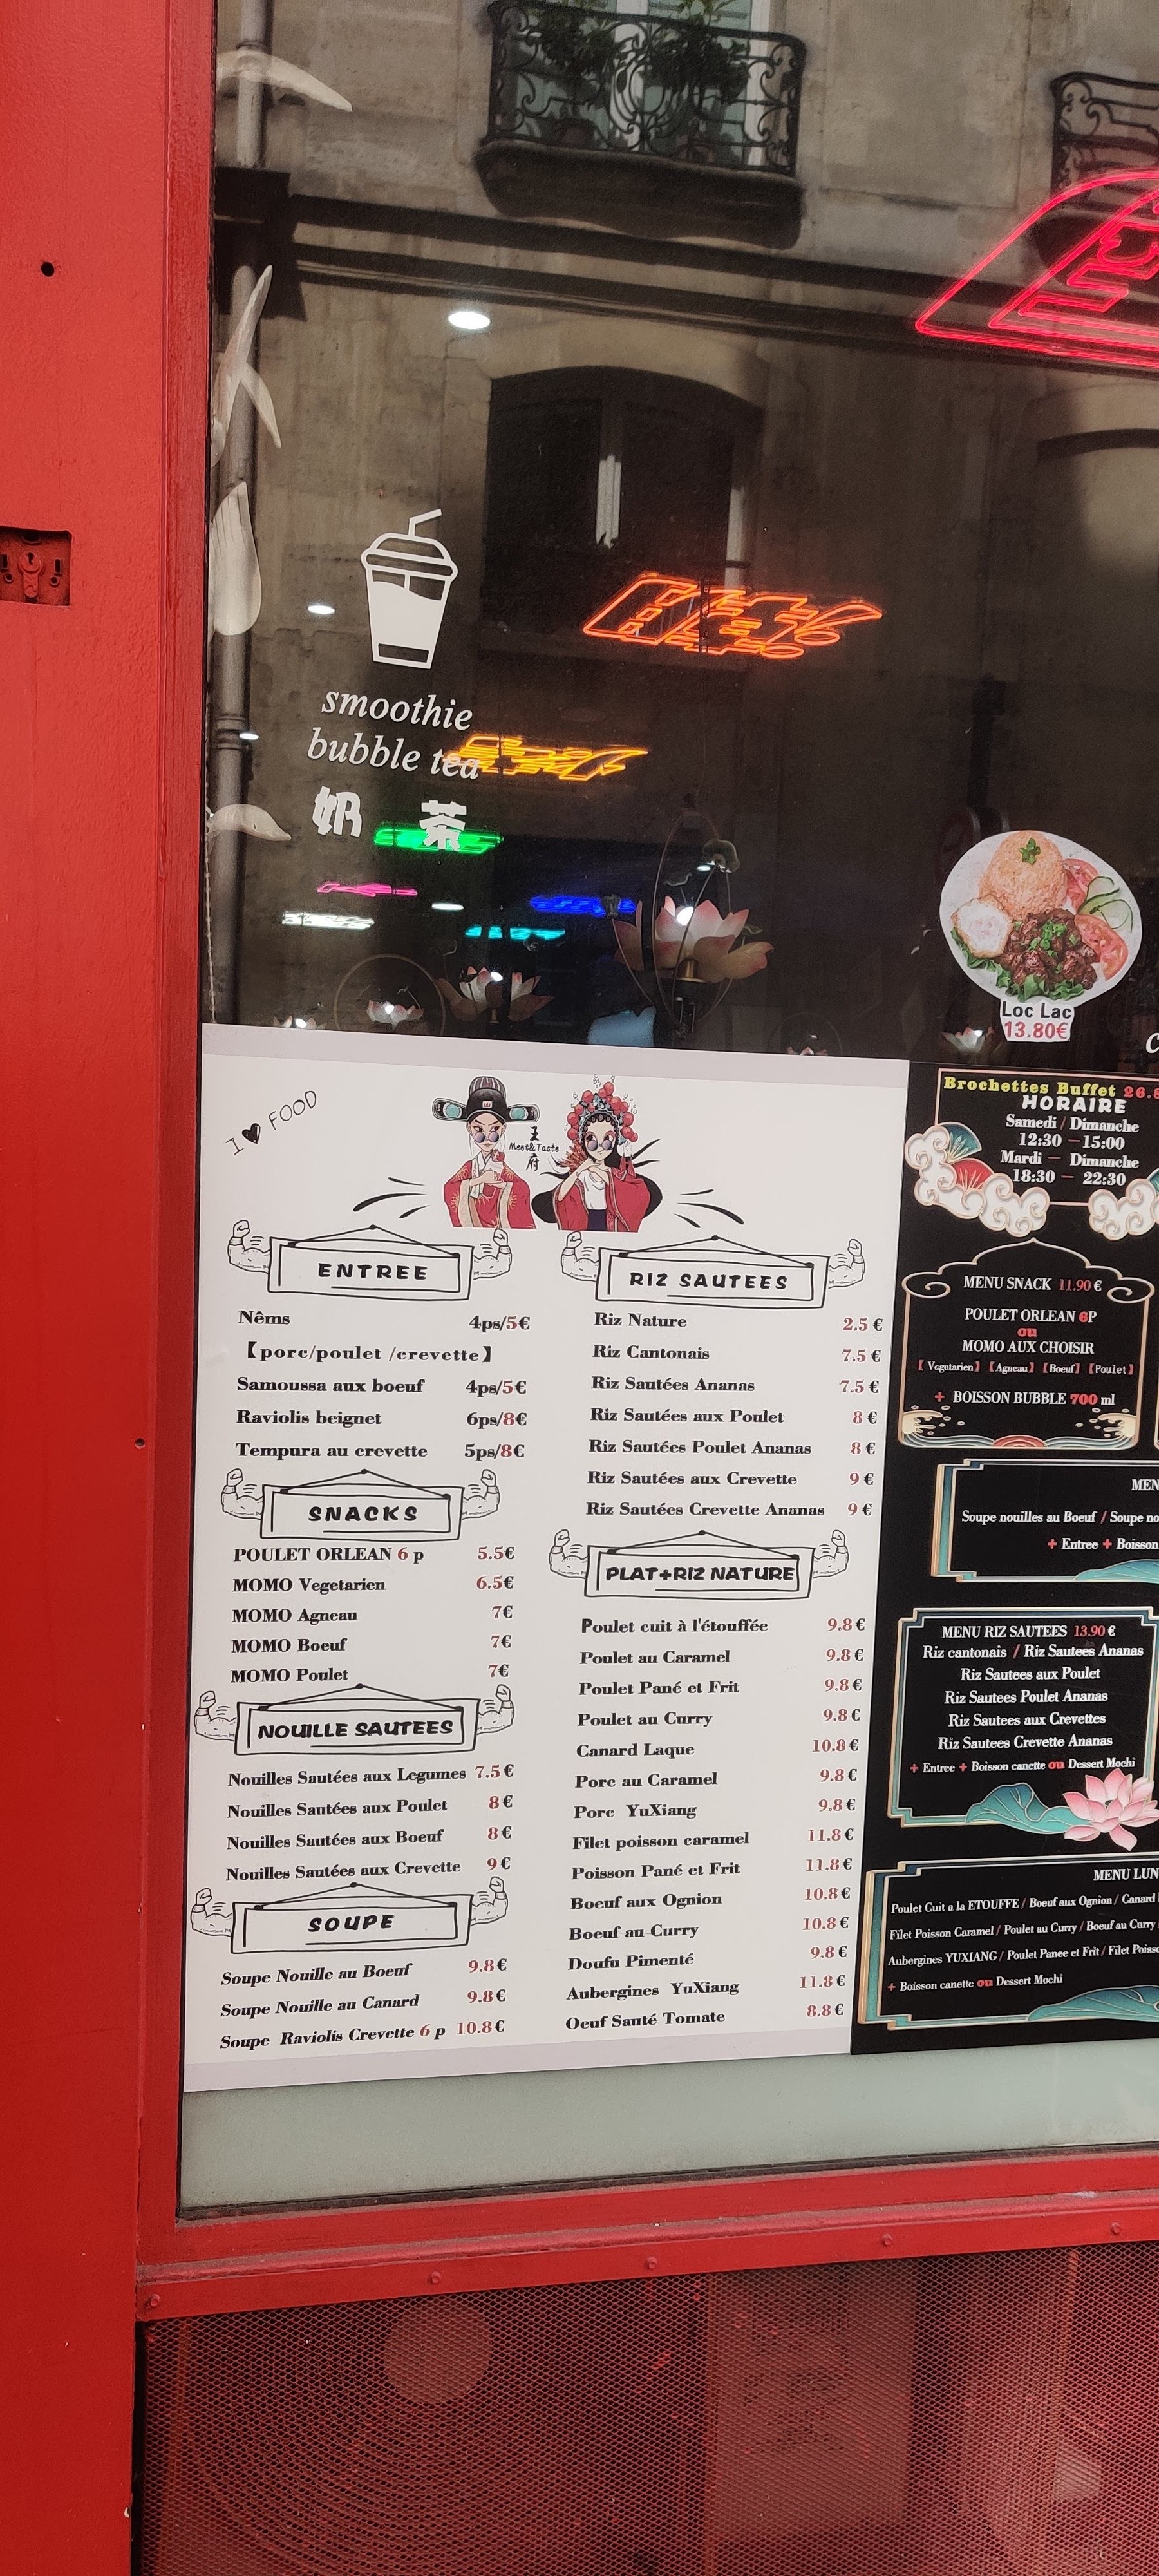 smoothie
bubble tea
奶 茶
Loc Lac
13.80€
I ♥ FOOD
王
Meet&Taste
府
ENTREE
Nêms 4ps/5€
【porc/poulet /crevette】
Samoussa aux boeuf 4ps/5€
Raviolis beignet 6ps/8€
Tempura au crevette 5ps/8€
SNACKS
POULET ORLEAN 6 p 5.5€
MOMO Vegetarien 6.5€
MOMO Agneau 7€
MOMO Boeuf 7€
MOMO Poulet 7€
NOUILLE SAUTEES
Nouilles Sautées aux Legumes 7.5€
Nouilles Sautées aux Poulet 8€
Nouilles Sautées aux Boeuf 8€
Nouilles Sautées aux Crevette 9€
SOUPE
Soupe Nouille au Boeuf 9.8€
Soupe Nouille au Canard 9.8€
Soupe Raviolis Crevette 6 p 10.8€
RIZ SAUTEES
Riz Nature 2.5 €
Riz Cantonais 7.5 €
Riz Sautées Ananas 7.5 €
Riz Sautées aux Poulet 8 €
Riz Sautées Poulet Ananas 8 €
Riz Sautées aux Crevette 9 €
Riz Sautées Crevette Ananas 9 €
PLAT+RIZ NATURE
Poulet cuit à l'étouffée 9.8€
Poulet au Caramel 9.8€
Poulet Pané et Frit 9.8€
Poulet au Curry 9.8€
Canard Laque 10.8€
Porc au Caramel 9.8€
Porc YuXiang 9.8€
Filet poisson caramel 11.8€
Poisson Pané et Frit 11.8€
Boeuf aux Ognion 10.8€
Boeuf au Curry 10.8€
Doufu Pimenté 9.8€
Aubergines YuXiang 11.8€
Oeuf Sauté Tomate 8.8€
Brochettes Buffet 26.8
HORAIRE
Samedi / Dimanche
12:30 — 15:00
Mardi — Dimanche
18:30 — 22:30
MENU SNACK 11.90 €
POULET ORLEAN 6P
ou
MOMO AUX CHOISIR
【Vegetarien】【Agneau】【Boeuf】【Poulet】
+ BOISSON BUBBLE 700 ml
MEN
Soupe nouilles au Boeuf / Soupe no
+ Entree + Boisson
MENU RIZ SAUTEES 13.90 €
Riz cantonais / Riz Sautees Ananas
Riz Sautees aux Poulet
Riz Sautees Poulet Ananas
Riz Sautees aux Crevettes
Riz Sautees Crevette Ananas
+ Entree + Boisson canette ou Dessert Mochi
MENU LUN
Poulet Cuit a la ETOUFFE / Boeuf aux Ognion / Canard
Filet Poisson Caramel / Poulet au Curry / Boeuf au Curry
Aubergines YUXIANG / Poulet Panee et Frit / Filet Poisso
+ Boisson canette ou Dessert Mochi